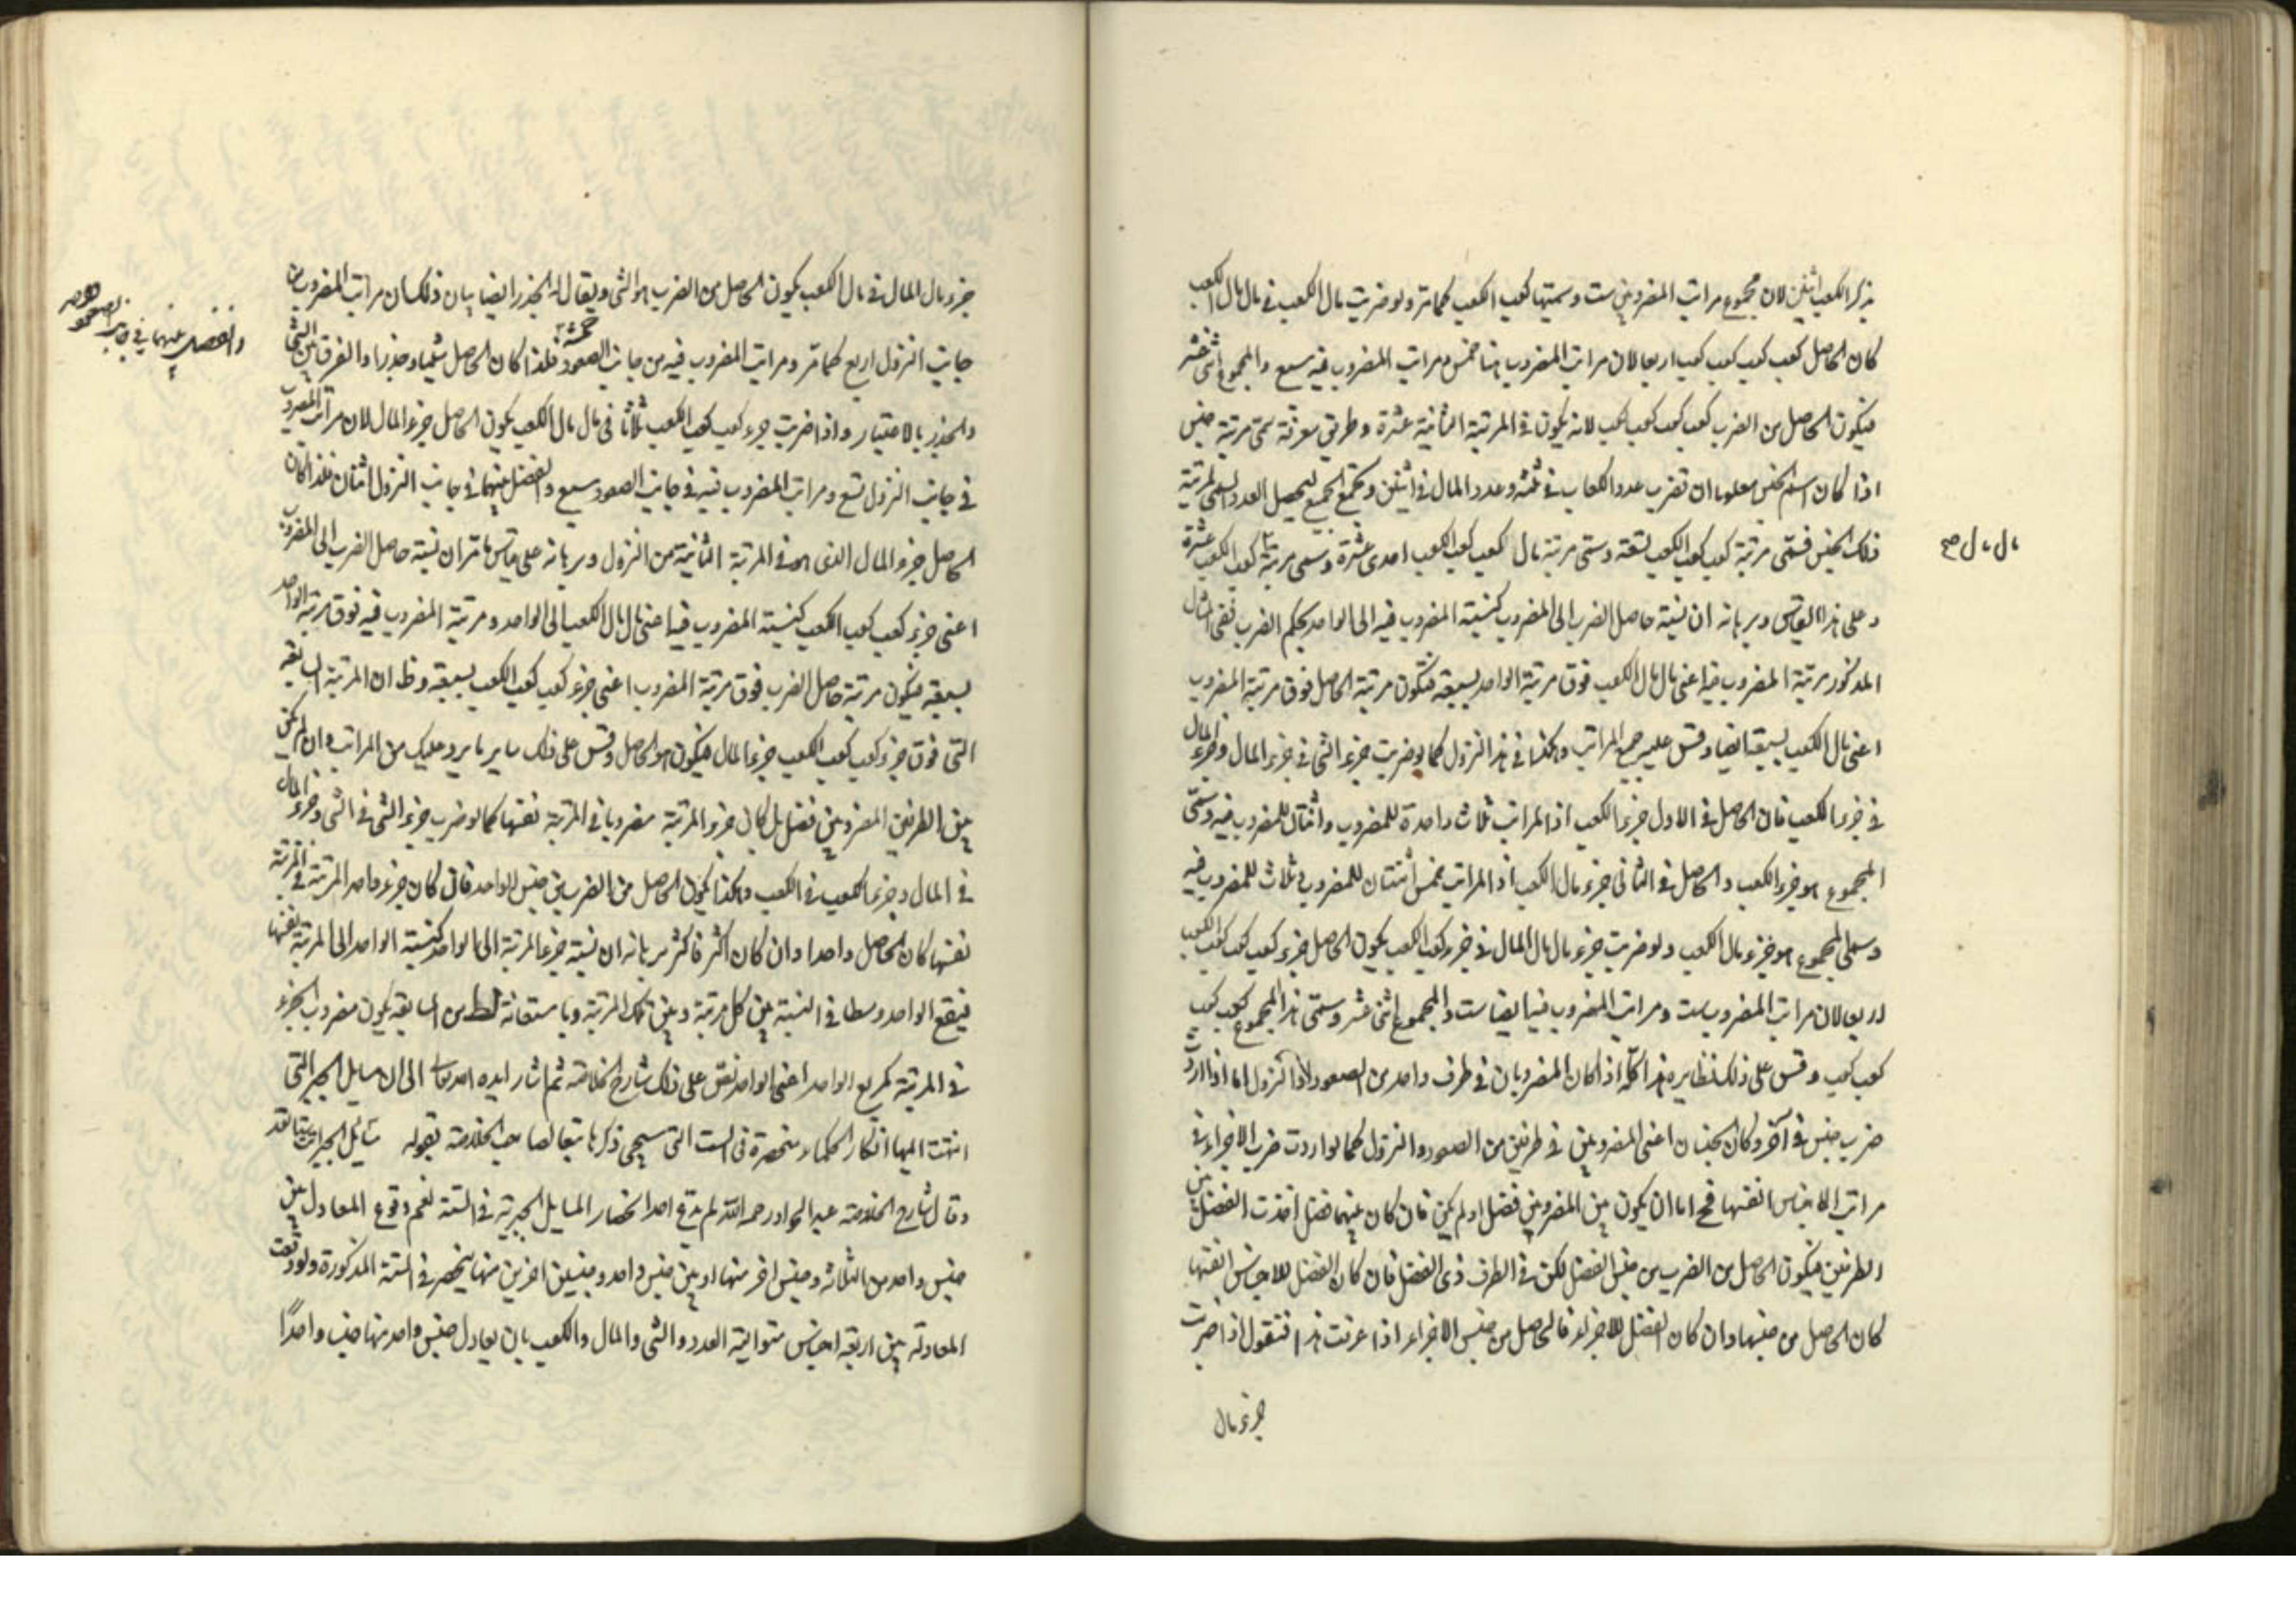 يذكر الكعب اثنين لان مجموع مراتب المضروبين ست وسميتها كعب الكعب كما مر ولو ضربت مال الكعب في مال مال الكعب
كان الحاصل كعب كعب كعب كعب اربعا لان مراتب المضروب هنا خمس ومراتب المضروب فيه سبع والمجموع اثنى عشر
فيكون الحاصل من الضرب كعب كعب كعب كعب لانه يكون في المرتبة الثانية عشرة وطريق معرفة سمى مرتبة جنس
اذا كان اسم الجنس معلوما ان تضرب عدد الكعاب في ثلثة وعدد المال في اثنين وتجمع الجميع ليحصل العدد السمى لمرتبة
ذلك الجنس فسمى مرتبة كعب كعب الكعب تسعة وسمى مرتبة مال كعب كعب الكعب احدى عشرة وسمى مرتبة كعب الكعب عشرة
مال مال صح
وعلى هذا القياس وبرهانه ان نسبة حاصل الضرب الى المضروب كنسبة المضروب فيه الى الواحد بحكم الضرب ففى المثال
المذكور مرتبة المضروب فيه اعنى مال مال الكعب فوق مرتبة الواحد بسبعة فتكون مرتبة الحاصل فوق مرتبة المضروب
اعنى مال الكعب بسبعة ايضا وقس عليه جميع المراتب وهكذا في هذا النزول كما لو ضربت جزء الشى في جزء المال وجزء المال
في جزء الكعب فان الحاصل في الاول جزء الكعب اذ المراتب ثلاث واحدة للمضروب واثنان للمضروب فيه وسمى
المجموع هو جزء الكعب والحاصل في الثانى جزء مال الكعب اذ المراتب خمس اثنتان للمضروب وثلاث للمضروب فيه
وسمى المجموع هو جزء مال الكعب ولو ضربت جزء مال مال المال في جزء كعب الكعب يكون الحاصل جزء كعب كعب كعب الكعب
اربعا لان مراتب المضروب ست ومراتب المضروب فيه ايضا ست والمجموع اثنى عشر وسمى هذا المجموع كعب كعب
كعب كعب وقس على ذلك نظايره هذا كله اذا كان المضروبان في طرف واحد من الصعود او النزول اما اذا اردت
ضرب جنس في آخر وكان الجنسان اعنى المضروبين في طرفين من الصعود والنزول كما لو اردت ضرب الاجزاء في
مراتب الاجناس انفسها فح اما ان يكون بين المضروبين فضل او لم يكن فان كان بينهما فضل اخذت الفضل بين
الطرفين فيكون الحاصل من الضرب من جنس الفضل لكن في الطرف ذى الفضل فان كان الفضل للاجناس انفسها
كان الحاصل من جنسها وان كان الفضل للاجزاء فالحاصل من جنس الاجزاء اذا عرفت هذا فنقول اذا ضربت
جزء مال
جزء مال المال في مال الكعب يكون الحاصل من الضرب هو الشى ويقال له الجذر ايضا بيان ذلك ان مراتب المضروب من
جانب النزول اربع كما مر ومراتب المضروب فيه من جانب الصعود خمسة فلذا كان الحاصل شيئا وجذرا والفرق بين الشى
والفضل بينهما في جانب الصعود
والجذر بالاعتبار واذا ضربت جزء كعب كعب الكعب ثلاثا في مال مال الكعب يكون الحاصل جزء المال لان مراتب المضروب
في جانب النزول تسع ومراتب المضروب فيه في جانب الصعود سبع والفضل بينهما في جانب النزول اثنان فلذا كان
الحاصل جزء المال الذى هو في المرتبة الثانية من النزول وبرهانه على قياس ما مر ان نسبة حاصل الضرب الى المضروب
اعنى جزء كعب كعب الكعب كنسبة المضروب فيه اعنى مال مال الكعب الى الواحد ومرتبة المضروب فيه فوق مرتبة الواحد
بسبعة فيكون مرتبة حاصل الضرب فوق مرتبة المضروب اعنى جزء كعب كعب الكعب بسبعة وظ ان المرتبة السابعة
التى فوق جزء كعب كعب الكعب جزء المال فيكون هو الحاصل وقس على ذلك ساير ما يرد عليك من المراتب وان لم يكن
بين الطرفين المضروبين فضل بل كان جزء المرتبة مضروبا في المرتبة نفسها كما لو ضرب جزء الشى في الشى وجزء المال
في المال وجزء الكعب في الكعب وهكذا يكون الحاصل من الضرب من جنس الواحد فان كان جزء واحد المرتبة في المرتبة
نفسها كان الحاصل واحدا وان كان اكثر فاكثر برهانه ان نسبة جزء المرتبة الى الواحد كنسبة الواحد الى المرتبة نفسها
فيقع الواحد وسطا في النسبة بين كل مرتبة وبين تلك المرتبة وباستعانة لط من السابعة يكون مضروب الجزء
في المرتبة كمربع الواحد اعنى الواحد نص على ذلك شارح الخلاصة ثم اشار ايده الله تعالى الى ان مسايل الجبر التى
انتهت اليها افكار الحكماء منحصرة في الست التى سيجى ذكرها تبعا لصاحب الخلاصة بقوله مسائل الجبرات
وقال شارح الخلاصة عبد الجواد رحمه الله لم يدع احد انحصار المسايل الجبرية في الستة نعم وقوع المعادلة بين
جنس واحد من الثلاثة وجنس اخر منها او بين جنس واحد وجنسين اخرين منها ينحصر في الستة المذكورة ولو وقعت
المعادلة بين اربعة اجناس متوالية العدد والشى والمال والكعب بان يعادل جنس واحد منها جنسا واحدًا